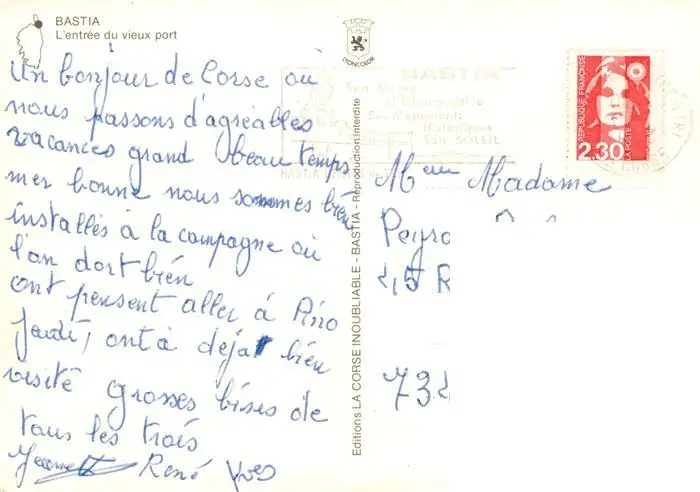 BASTIA
L'entrée du vieux port
Un bonjour de Corse où
nous passons d'agréables
vacances grand beau temps
mer bonne nous sommes bien
installés à la campagne où
l'on dort bien
ont pensent aller à Pino
Jeudi, ont à déjà bien
visité Grosses bises de
tous les trois
Jeannett René Yves
LYONCOLOR
Editions LA CORSE INOUBLIABLE - BASTIA - Reproduction interdite
BASTIA
Son Musée
d'Ethnographie
Ses Monuments
Historiques
Son SOLEIL
REPUBLIQUE FRANÇAISE
LA POSTE
2.30
Meur Madame
Peyro
45 R
732